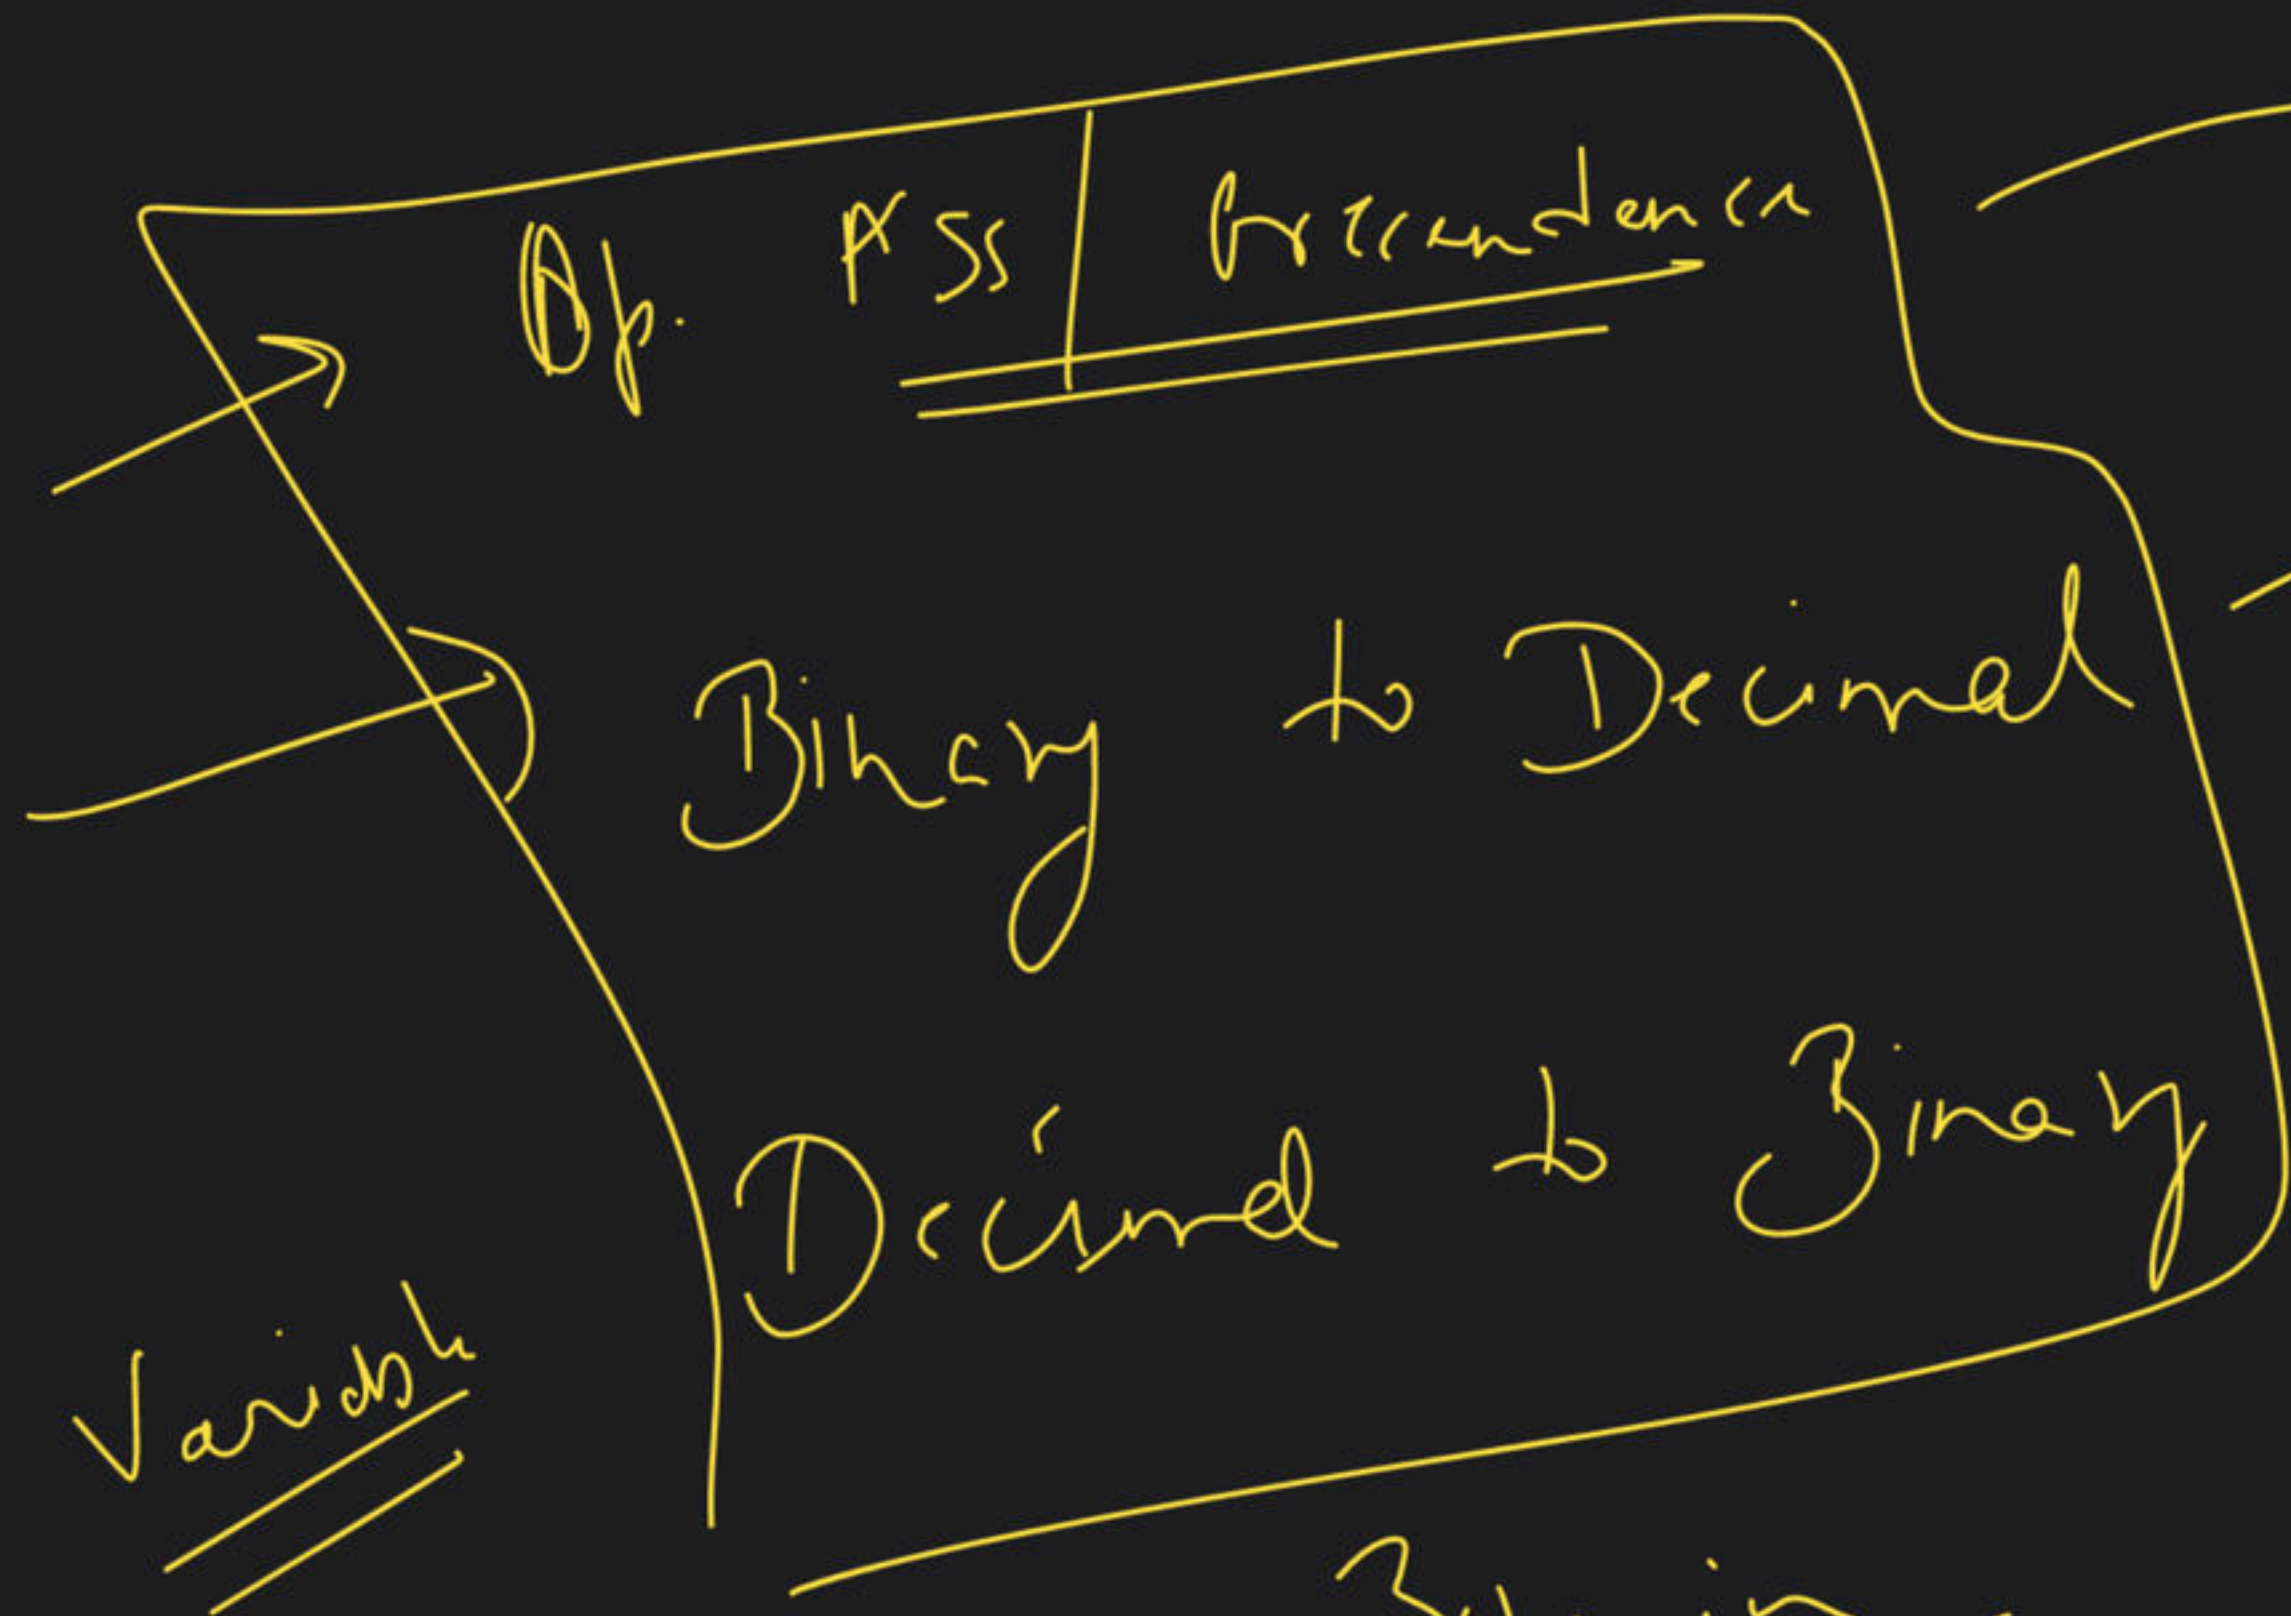 Op. Ass | Preceendence
Binary to Decimal
Decimal to Binary
Variable